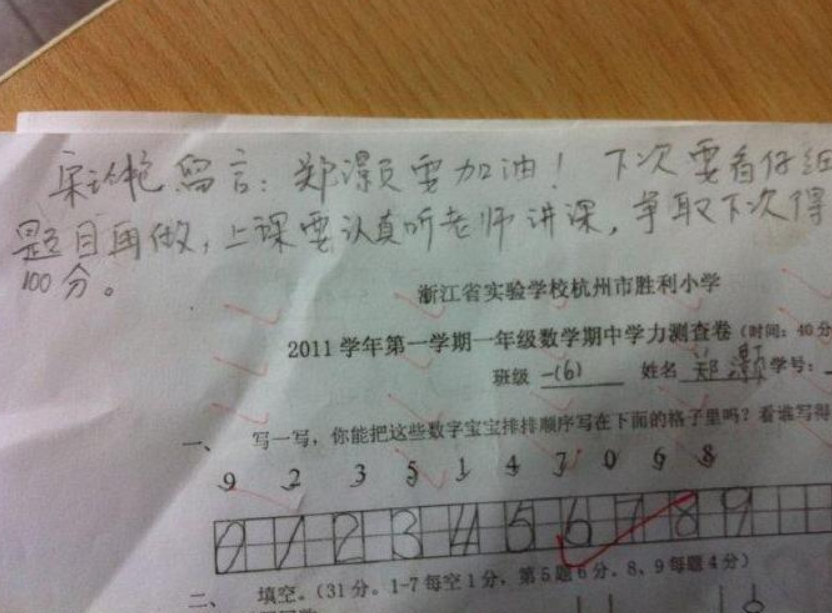 留言：郑灏要加油！下次要看仔细
题目再做，上课要认真听老师讲课，争取下次得
100分。
浙江省实验学校杭州市胜利小学
2011学年第一学期一年级数学期中学力测查卷（时间：40分
班级 一(6) 姓名 郑灏 学号：
一、 写一写，你能把这些数字宝宝排排顺序写在下面的格子里吗？看谁写得
9 2 3 5 1 4 7 0 6 8
0 1 2 3 4 5 6 7 8 9
二、 填空。（31分。1-7每空1分，第5题6分。8、9每题4分）